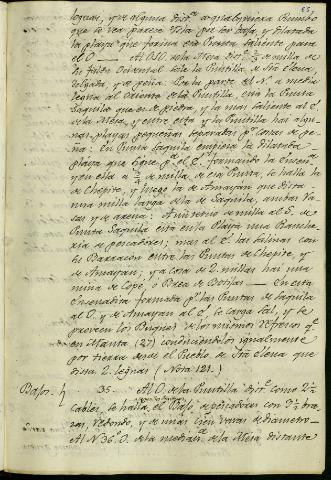 leguas, y de alguna dist.ª a qualquiera Rumbo
que se vea parece Ysla por ser baja y dilatada
la playa que forma esta Punta saliente para
el O. — Al OSO. de la Mesa dist.ª ½ milla de
su falda Occidental sale la Puntilla de Sta Elena,
delgada, y a peñon. En la parte del N. a media
legua al Oriente de la Puntilla, está la Punta
Saquilo que es de piedra, y la mas saliente al N.
de la Mesa, y entre esta y la Puntilla hai algu-
nas playas pequeñas separadas p.r lomas de pe-
ña: En Punta Saquila empieza la dilatada
playa que sigue p.ª el E. formando la Ensen.da
y en ella a ¾ de milla de esta Punta, se halla la
de Chepite, y luego la de Amayan que dista
una milla larga de la de Saquila, ambas ra-
sas y de arena: A un tercio de milla al S. de
Punta Saquila está en la Playa una Ranche-
ria de pescadores; mas al E. las Salinas con
su Barracon entre las Puntas de Chepite, y
de Amayan; y a cosa de 2 millas hai una
mina de Copé, ó Brea de Botijas — En esta
Ensenadita formada p.r las Puntas de Saquila
al O. y de Amayan al E. se carga Sal, y se
proveen los Buques de los mismos refrescos q.e
en Manta (27) conduciendolos igualmente
por tierra desde el Pueblo de Sta Elena que
dista 2 leguas (Nota 121.)
Bajos. 35 — Al O. de la Puntilla dist.ª como 2½
cables, se halla el Bajo de pescadores con 3½ bra-
zas, redondo, y de mas cien varas de diametro —
Al N 36° O. de la mediania de la Mesa distante